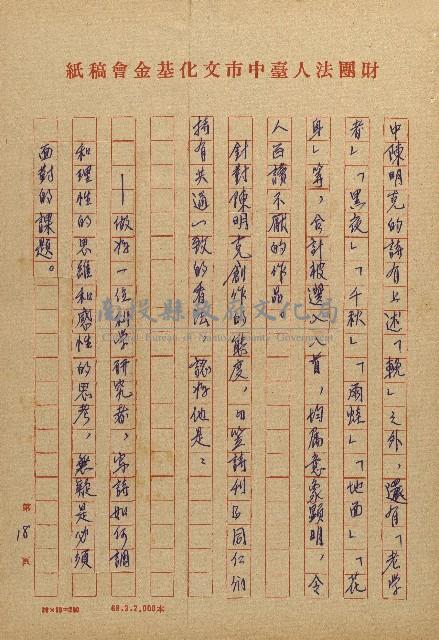 財團法人臺中市文化基金會稿紙
中陳明克的詩有上述「輓」之外，還有「老學
者」「黑夜」「千秋」「雨絲」「地面」「花
身」等，合計被選入八首，均屬意象顯明，令
人百讀不厭的作品
針對陳明克創作的態度，由笠詩刊的同仁們
持有共通一致的看法，認為他是：
——做為一位科學研究者，寫詩如何調
和理性的思維和感性的思考，無疑是必須
面對的課題。
第18頁
68.3.2,000本
南投縣政府文化局
Cultural Bureau of Nantou County Government